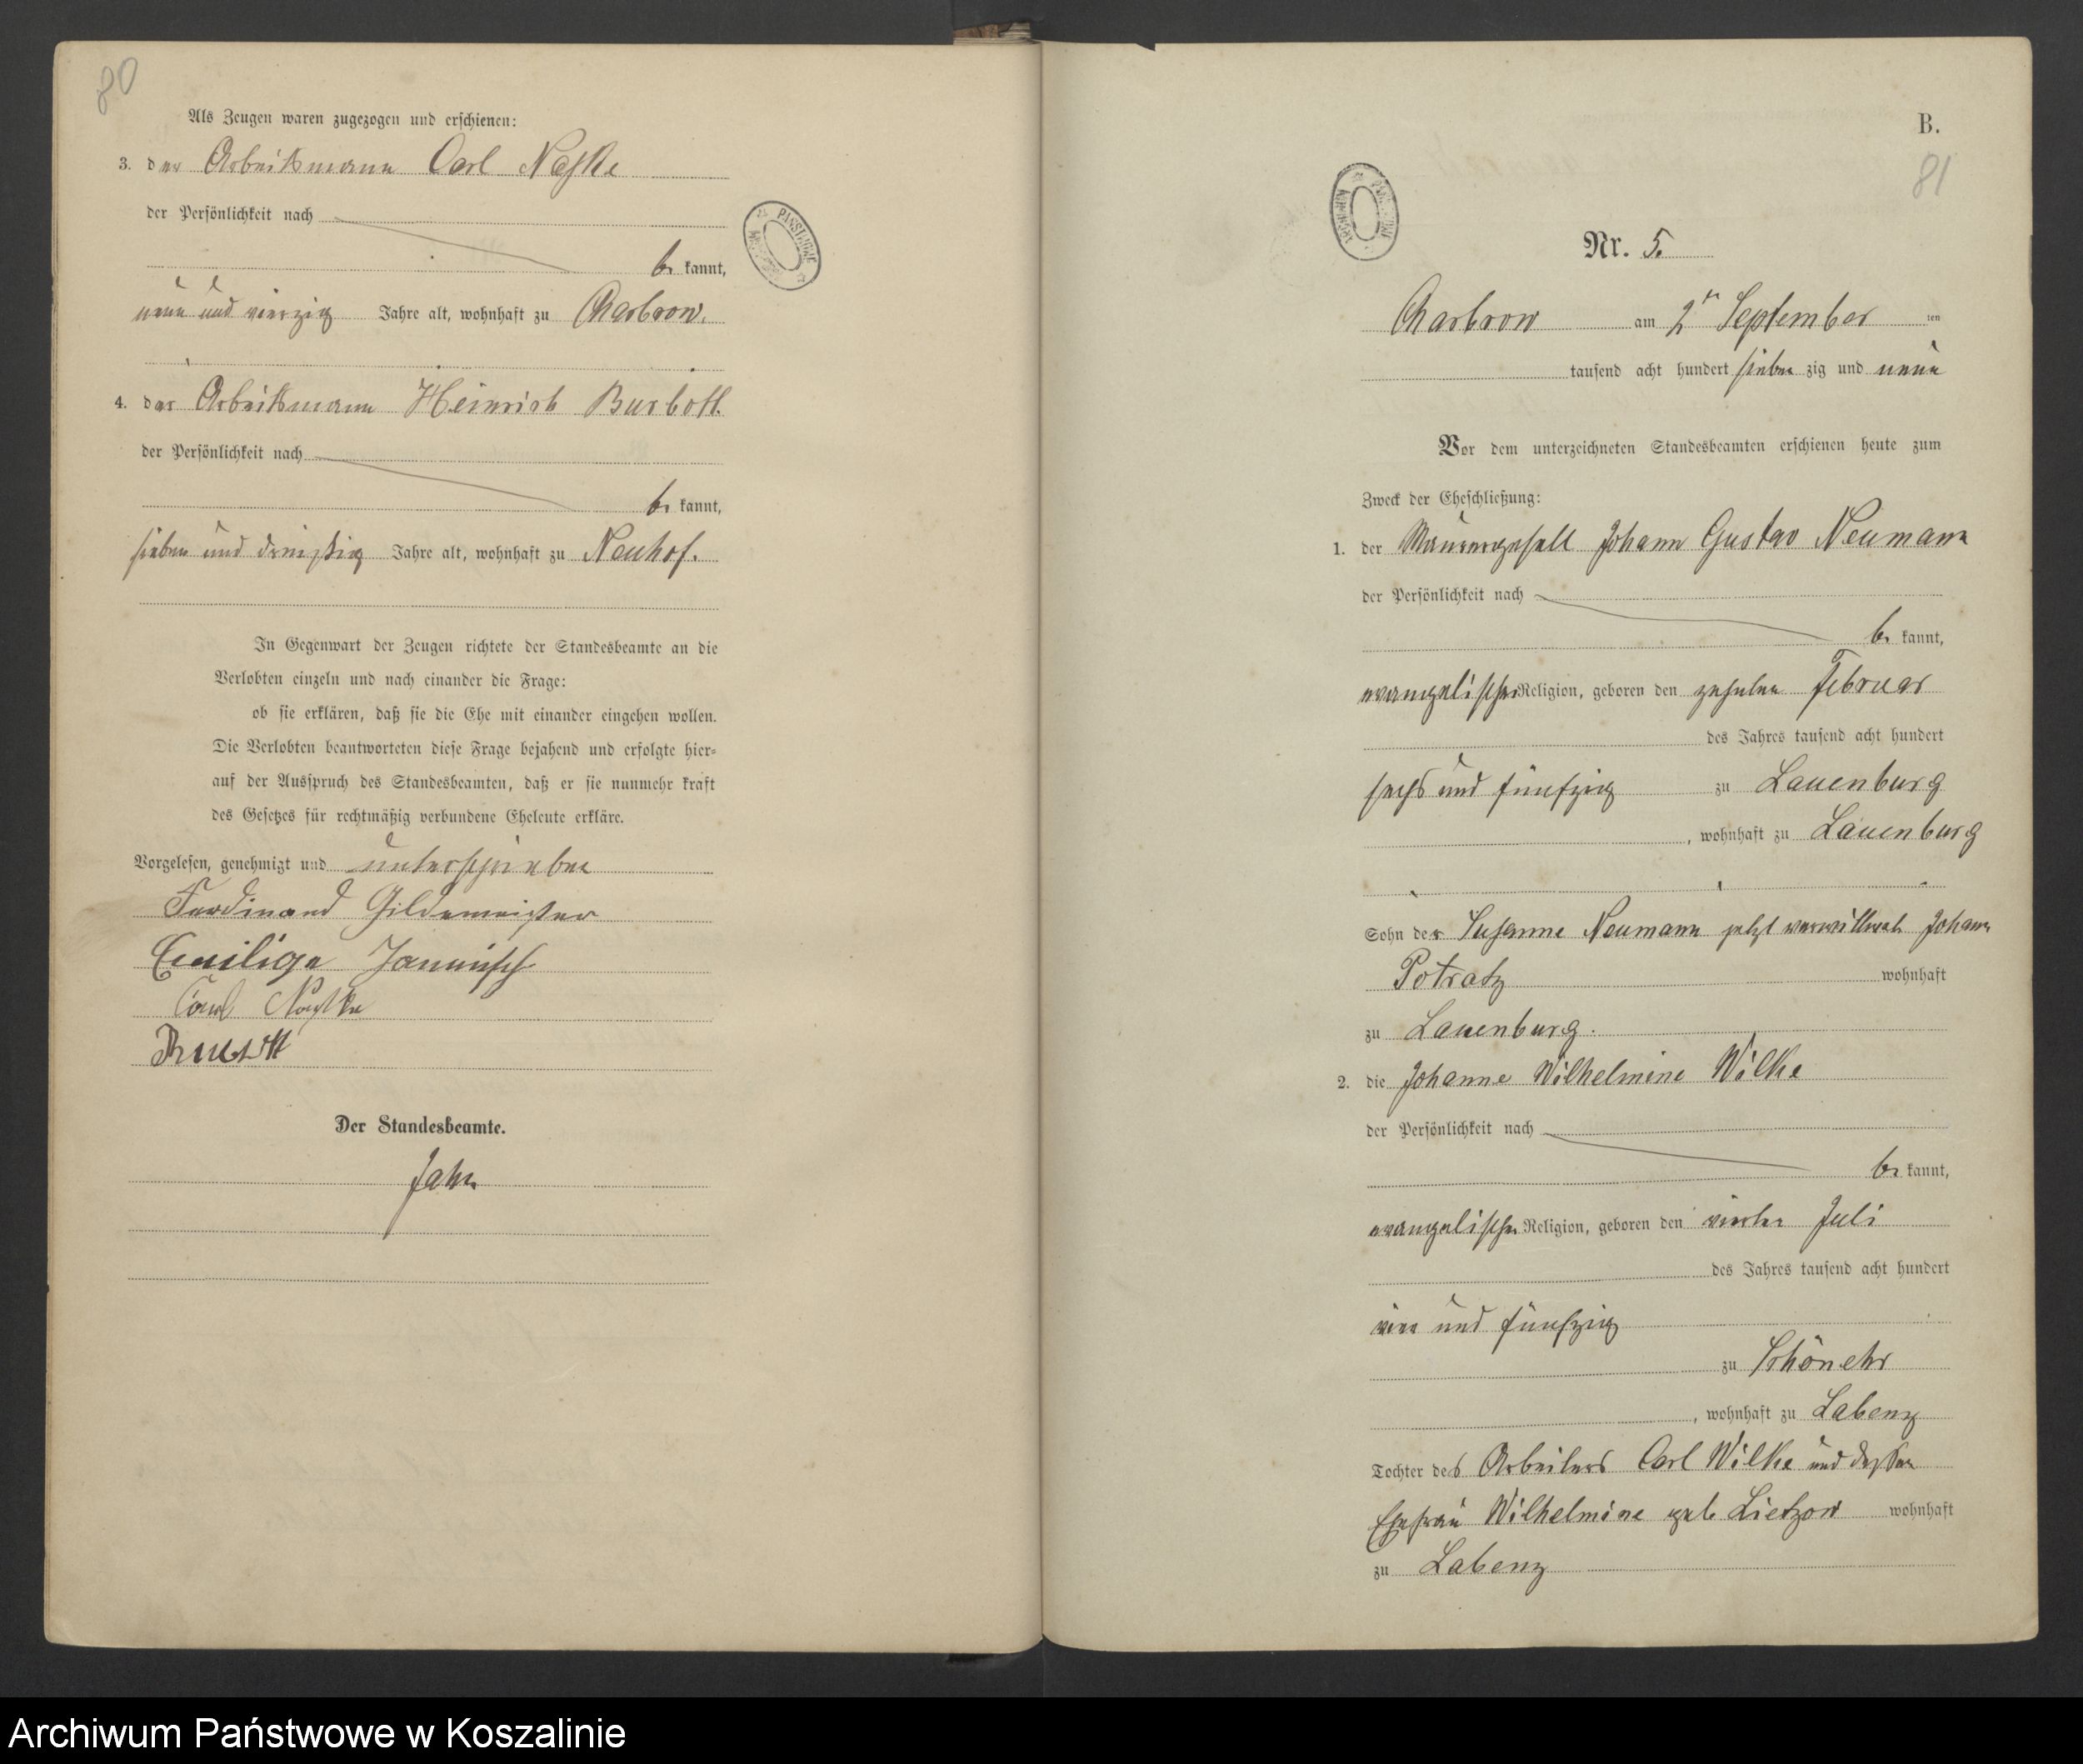 80
Als Zeugen waren zugezogen und erschienen:
3. der Arbeitsmann Carl Naske
der Persönlichkeit nach
be kannt,
neun und vierzig Jahre alt, wohnhaft zu Charbrow.
4. der Arbeitsmann Heinrich Burbott
der Persönlichkeit nach
be kannt,
sieben und dreißig Jahre alt, wohnhaft zu Neuhof.
In Gegenwart der Zeugen richtete der Standesbeamte an die
Verlobten einzeln und nach einander die Frage:
ob sie erklären, daß sie die Ehe mit einander eingehen wollen.
Die Verlobten beantworteten diese Frage bejahend und erfolgte hier-
auf der Ausspruch des Standesbeamten, daß er sie nunmehr kraft
des Gesetzes für rechtmäßig verbundene Eheleute erkläre.
Vorgelesen, genehmigt und unterschrieben
Ferdinand Gildemeister
Jannusch
Carl
Der Standesbeamte.
Jahn
B.
81
Nr. 5.
Charbrow am 2ten September ten
tausend acht hundert sieben zig und neun
Vor dem unterzeichneten Standesbeamten erschienen heute zum
Zweck der Eheschließung:
1. der Maurergesell Johann Gustav Neumann
der Persönlichkeit nach
be kannt,
evangelischer Religion, geboren den zehnten Februar
des Jahres tausend acht hundert
sechs und fünfzig zu Lauenburg
, wohnhaft zu Lauenburg
Sohn der Susanne Neumann jetzt verwittwete Johann
Potratz wohnhaft
zu Lauenburg.
2. die Johanne Wilhelmine Wilke
der Persönlichkeit nach
be kannt,
evangelischer Religion, geboren den vierten Juli
des Jahres tausend acht hundert
vier und fünfzig
zu Schönehr
, wohnhaft zu Labenz
Tochter des Arbeiters Carl Wilke und dessen
Ehefrau Wilhelmine geb Lietzow wohnhaft
zu Labenz
Archiwum Państwowe w Koszalinie